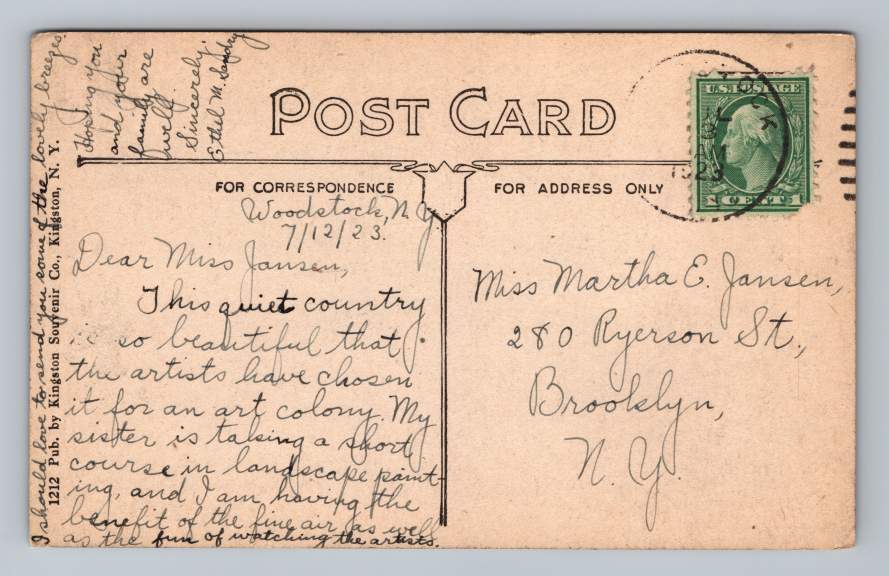 POST CARD
FOR CORRESPONDENCE
FOR ADDRESS ONLY
U.S. POSTAGE
1 CENTS 1
1923
Woodstock, N.Y.
7/12/23.
Dear Miss Jansen,
This quiet country
is so beautiful that
the artists have chosen
it for an art colony. My
sister is taking a short
course in landscape paint-
ing, and I am having the
benefit of the fine air as well
as the fun of watching the artists.
I should love to send you some of the lovely breezes.
Hoping you
and your
family are
well.
Sincerely,
Ethel M.
Miss Martha E. Jansen,
280 Ryerson St.,
Brooklyn,
N.Y.
1212 Pub. by Kingston Souvenir Co., Kingston, N. Y.